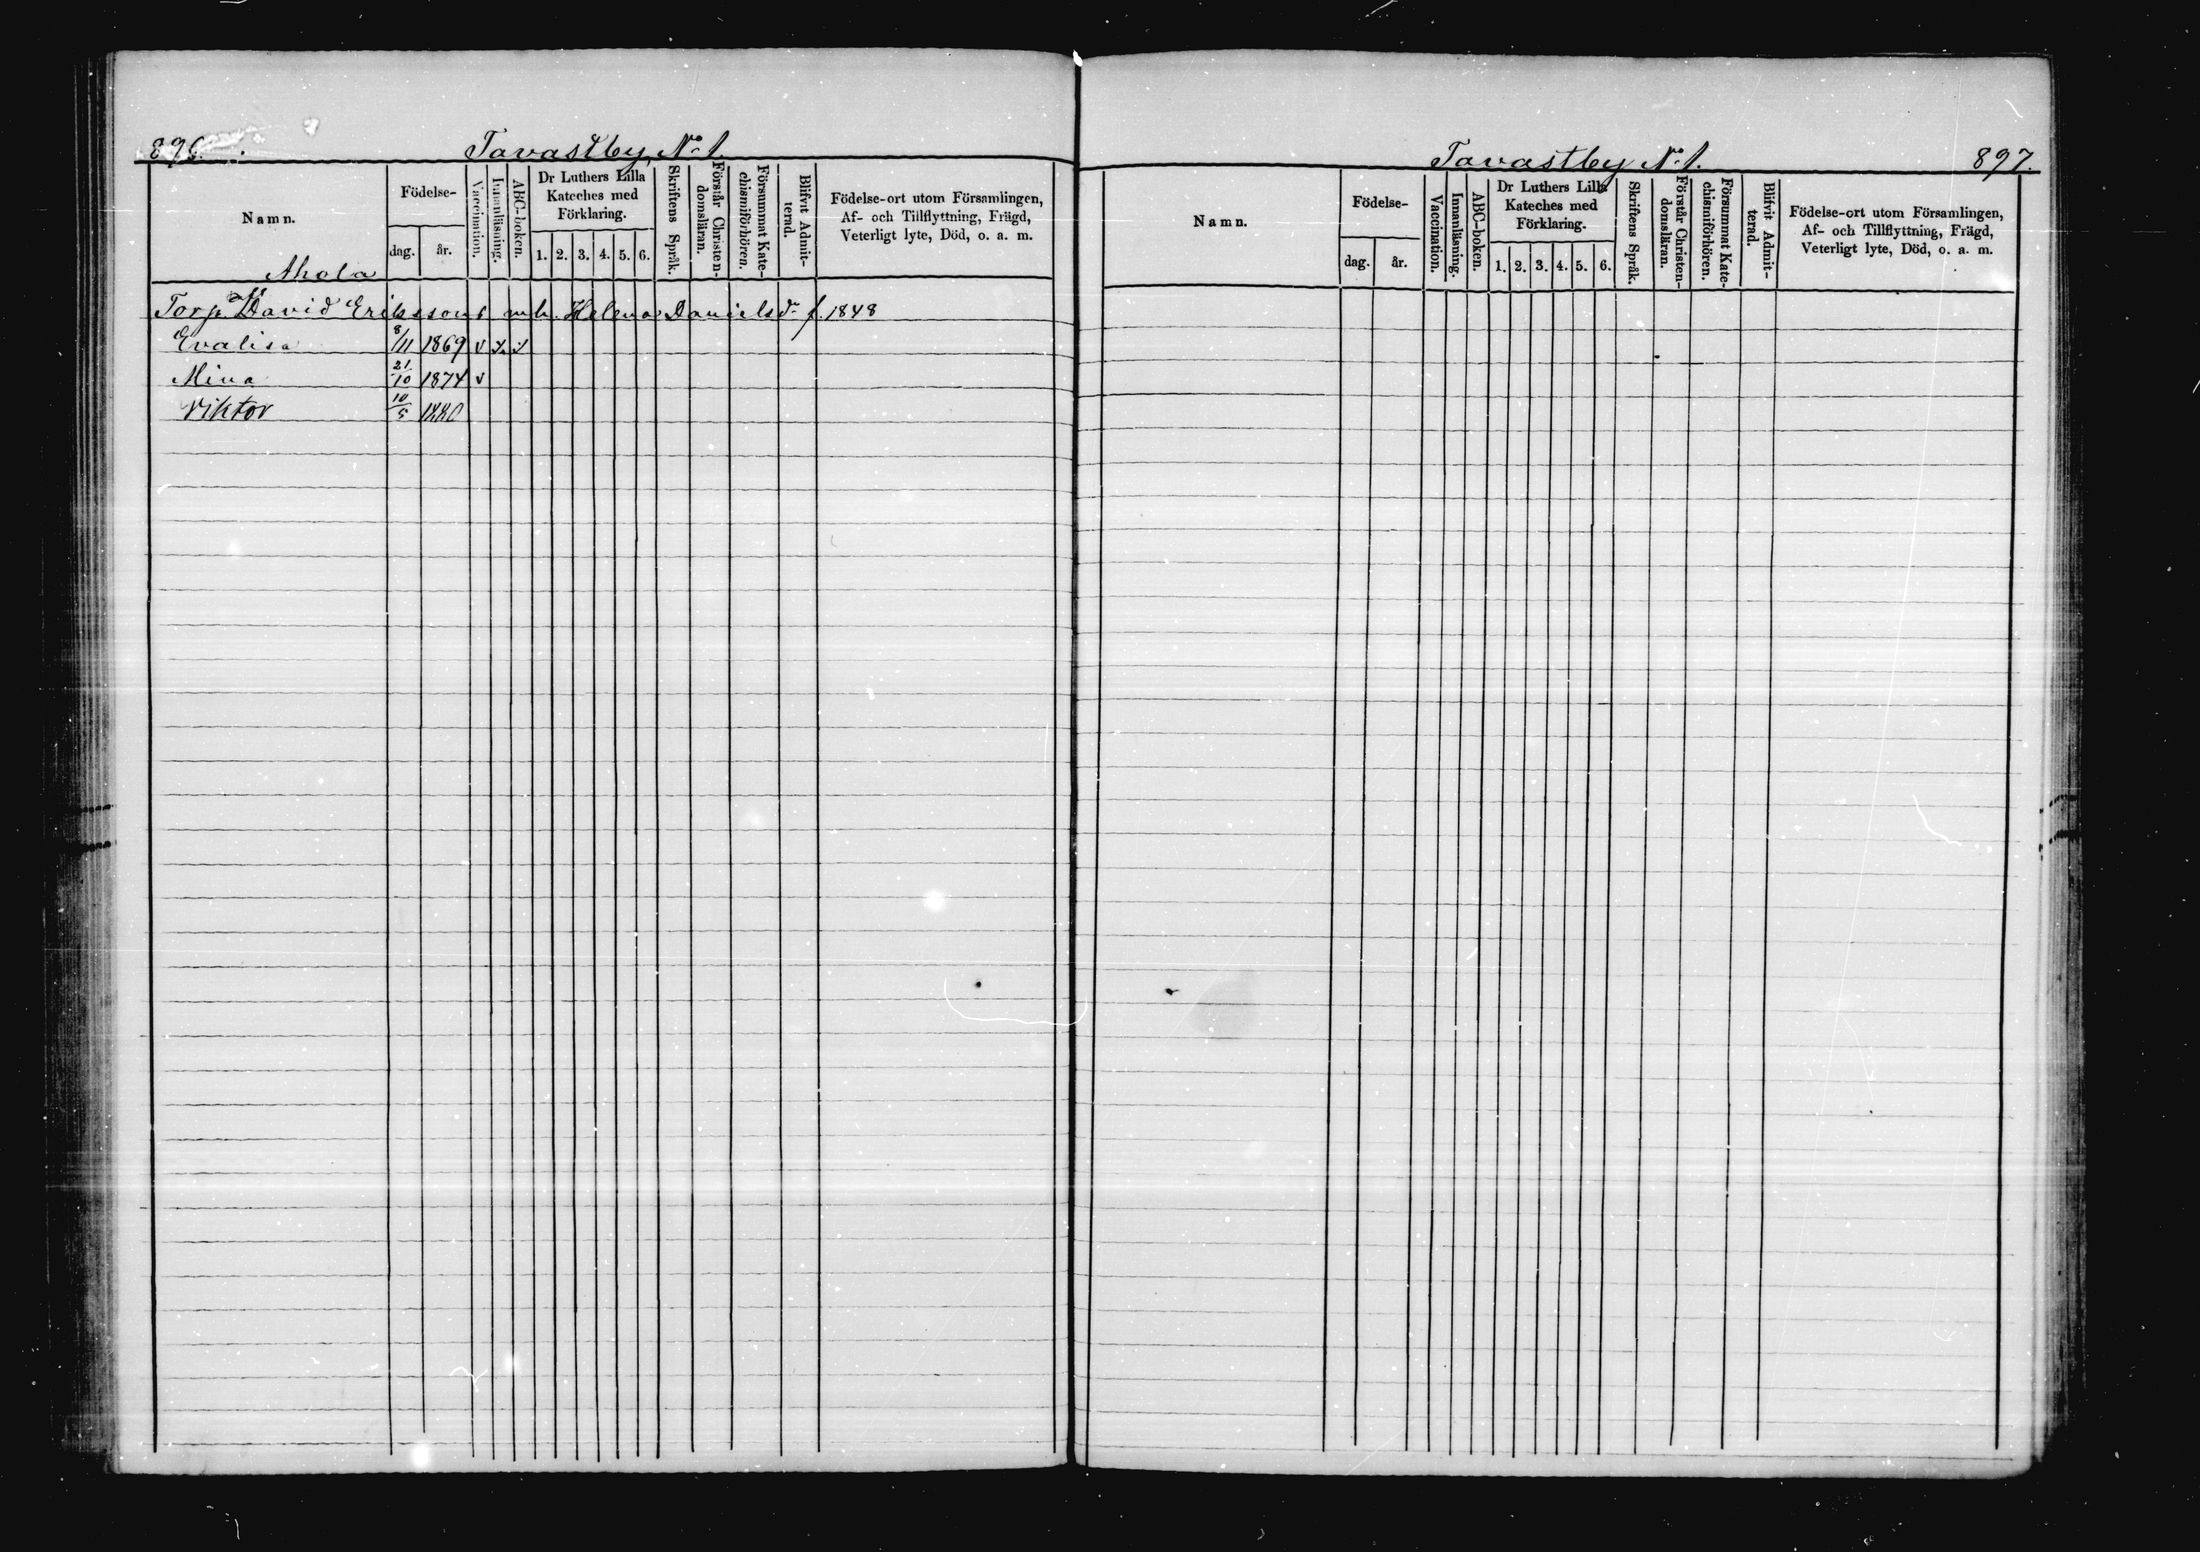 896.
Tavastby No 1.
Namn.
Födelse-
dag.
år.
Vaccination.
Innanläsning.
ABC-boken.
Dr Luthers Lilla
Kateches med
Förklaring.
1. 2. 3. 4. 5. 6.
Skriftens Språk.
Förstår Christen-
domsläran.
Försummat Kate-
chismiförhören.
Blifvit Admit-
terad.
Födelse-ort utom Församlingen,
Af- och Tillflyttning, Frägd,
Veterligt lyte, Död, o. a. m.
Ahola
Torp. David Eriksson m h. Helena Danielsdr f. 1848
Evalisa 8/11 1869 v
Mina 21/10 1874 v
Viktor 10/5 1880
Tavastby No 1.
897.
Namn.
Födelse-
dag.
år.
Vaccination.
Innanläsning.
ABC-boken.
Dr Luthers Lilla
Kateches med
Förklaring.
1. 2. 3. 4. 5. 6.
Skriftens Språk.
Förstår Christen-
domsläran.
Försummat Kate-
chismiförhören.
Blifvit Admit-
terad.
Födelse-ort utom Församlingen,
Af- och Tillflyttning, Frägd,
Veterligt lyte, Död, o. a. m.